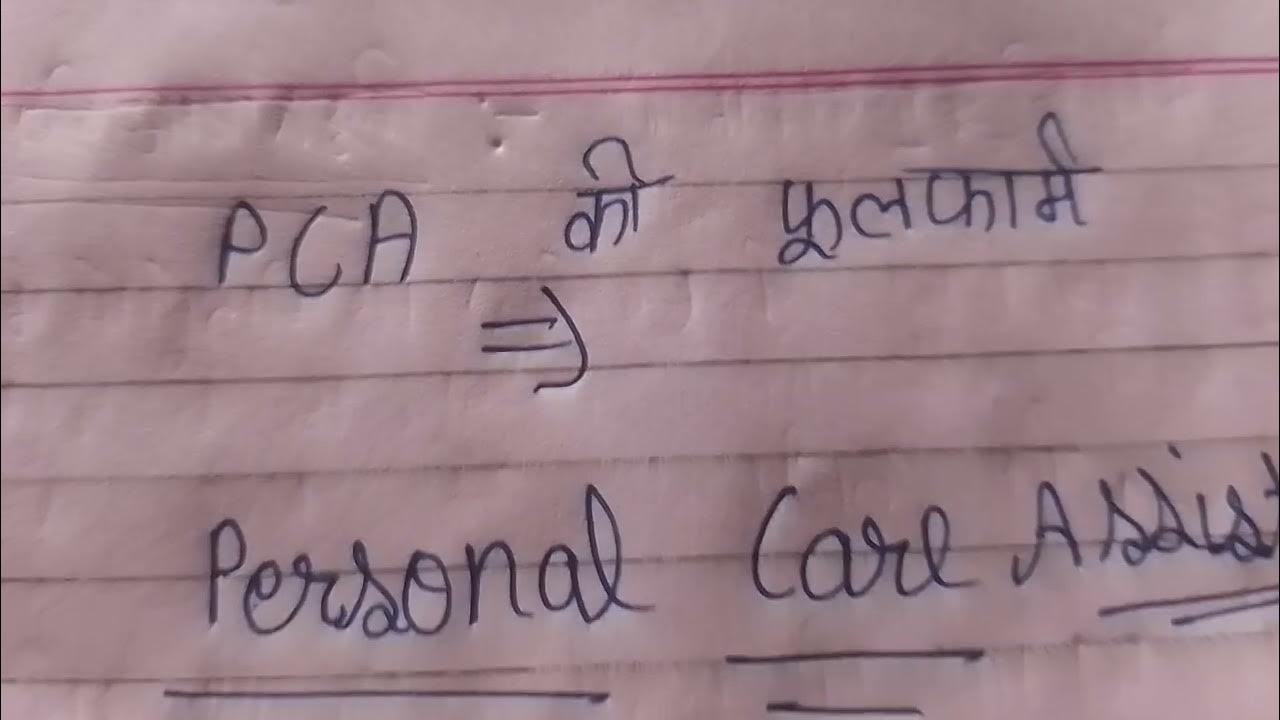 PCA की फूलफार्म
⇒
Personal Care Assist